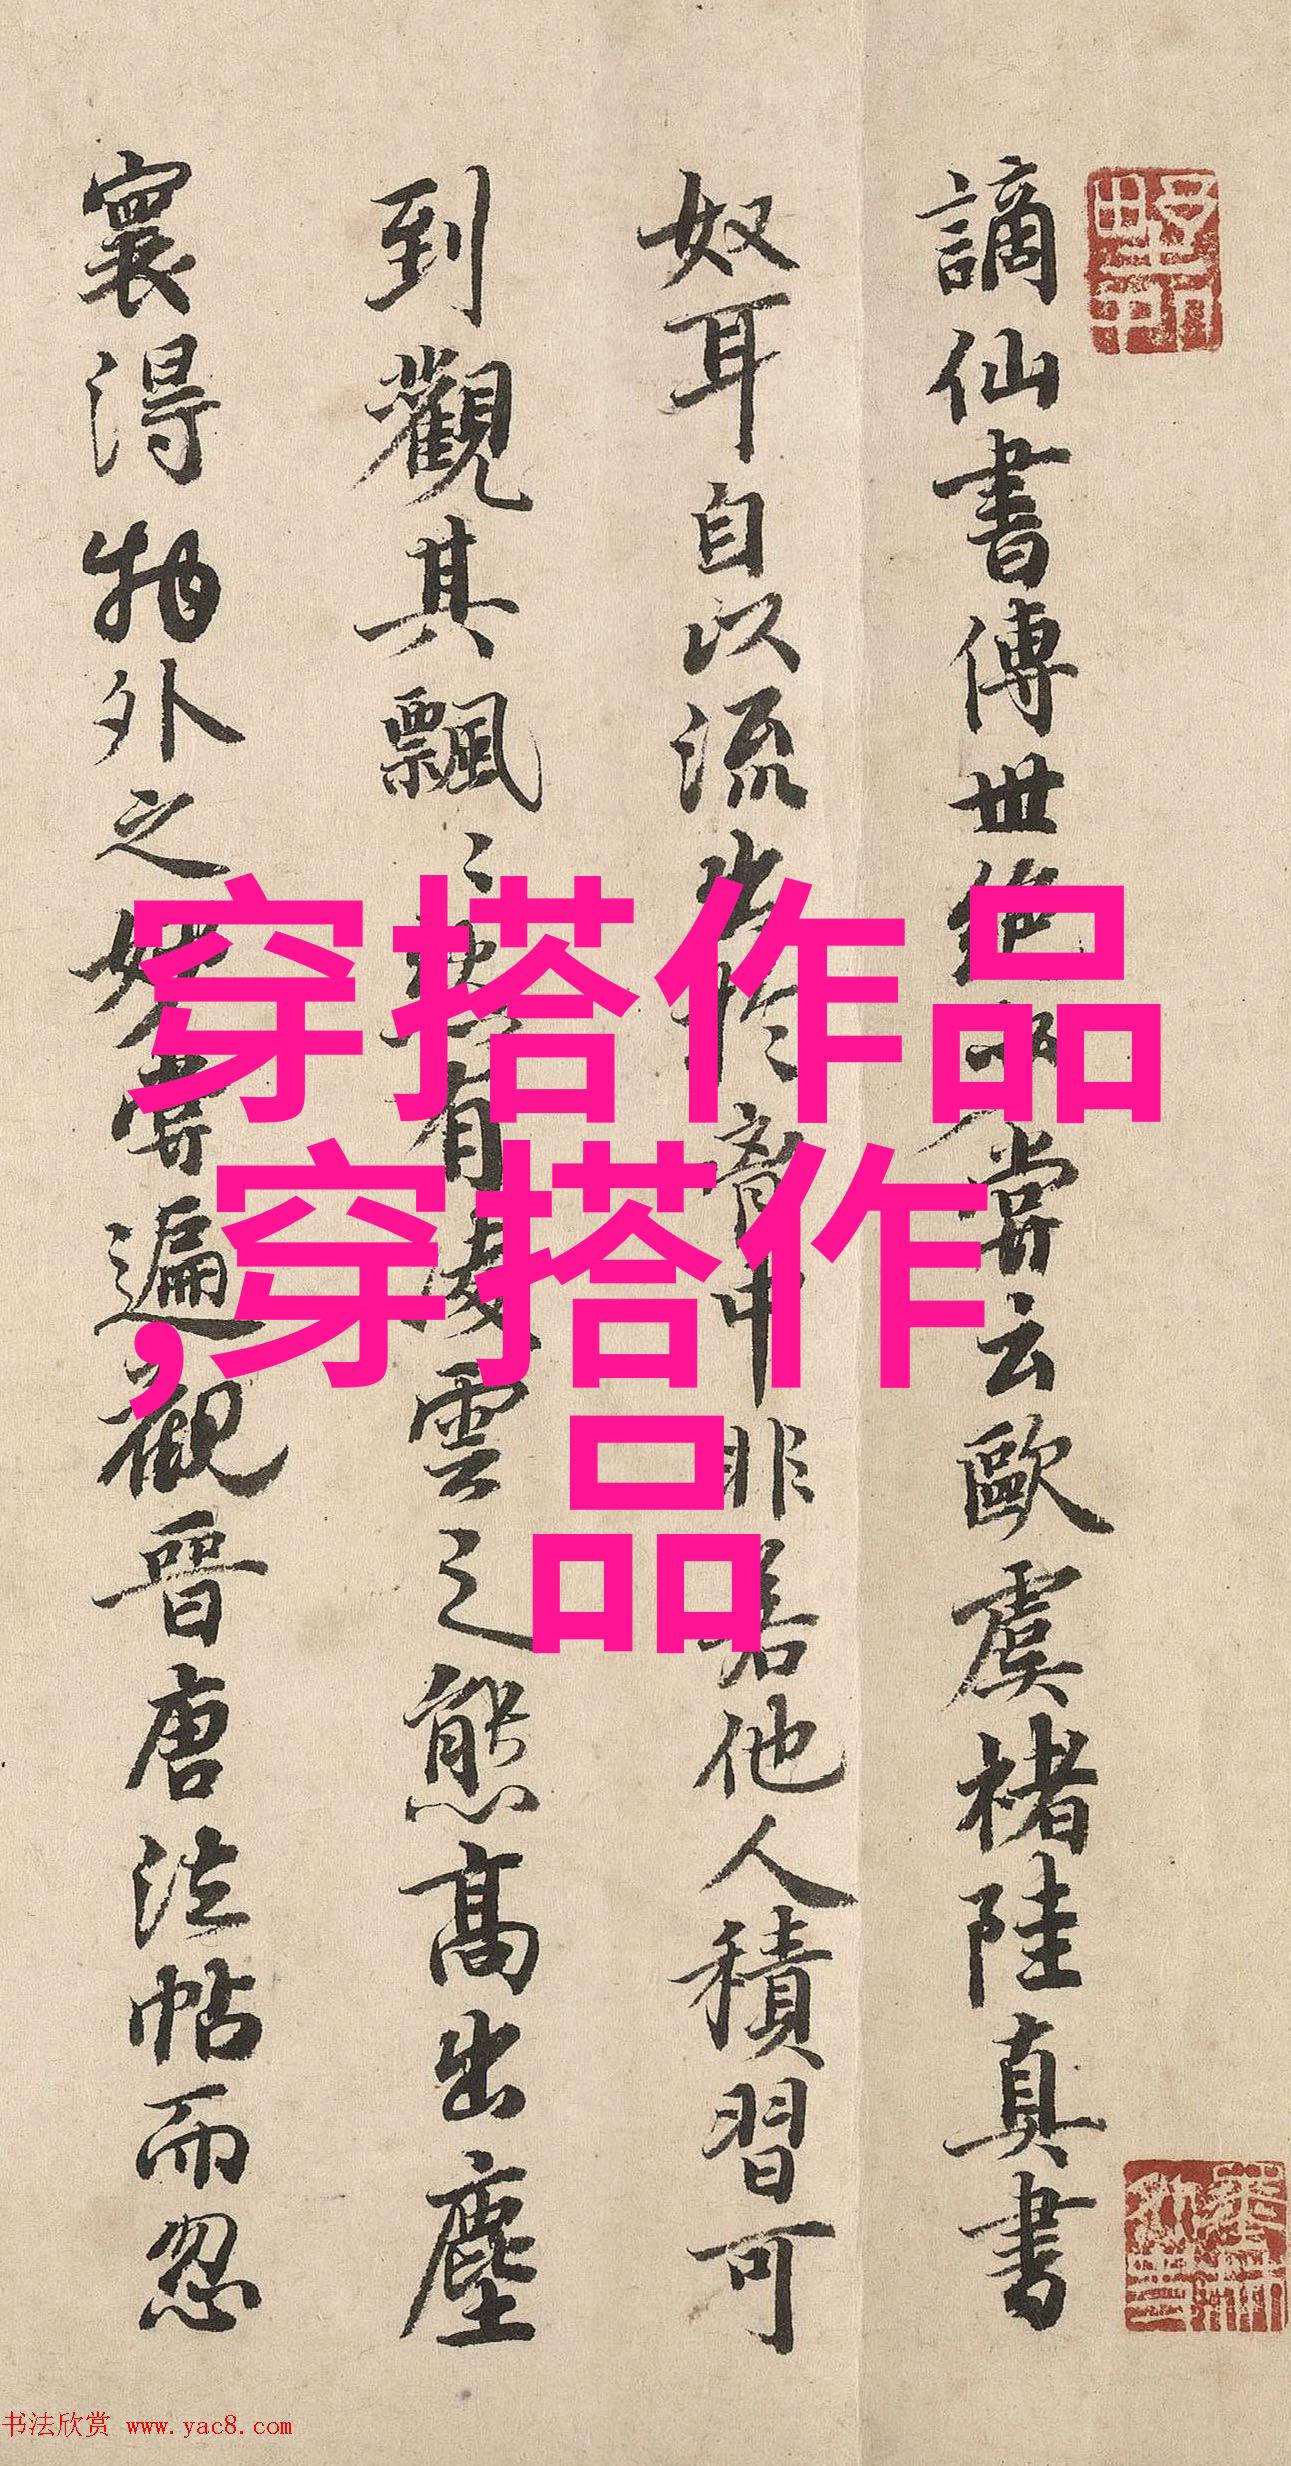 謫仙書傳世絕少嘗云歐虞褚陸真書
奴耳自以流出於胷中非若他人積習可
到觀其飄〻然有凌雲之態高出塵
寰得物外之妙嘗遍觀晉唐法帖而忽
穿搭作品
,穿搭作
品
书法欣赏 www.yac8.com